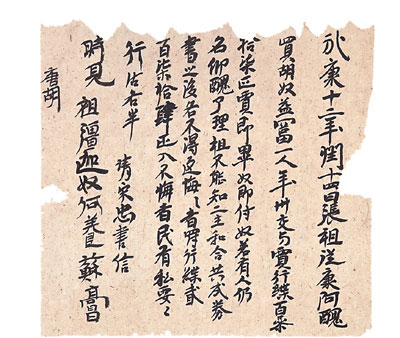 永康十二年閏十四日張祖從康阿醜
買胡奴益富一人年卅交与賈行緤百叁
拾柒匹賈即畢奴即付奴若有人仍
名仰醜了理祖不能知二主和合共成券
書之後各不得返悔々者罰行緤貳
百柒拾肆匹入不悔者民有私要々
行沽各半 請宋忠書信
時見 祖疆 迦奴 何養 蘇高昌
唐胡